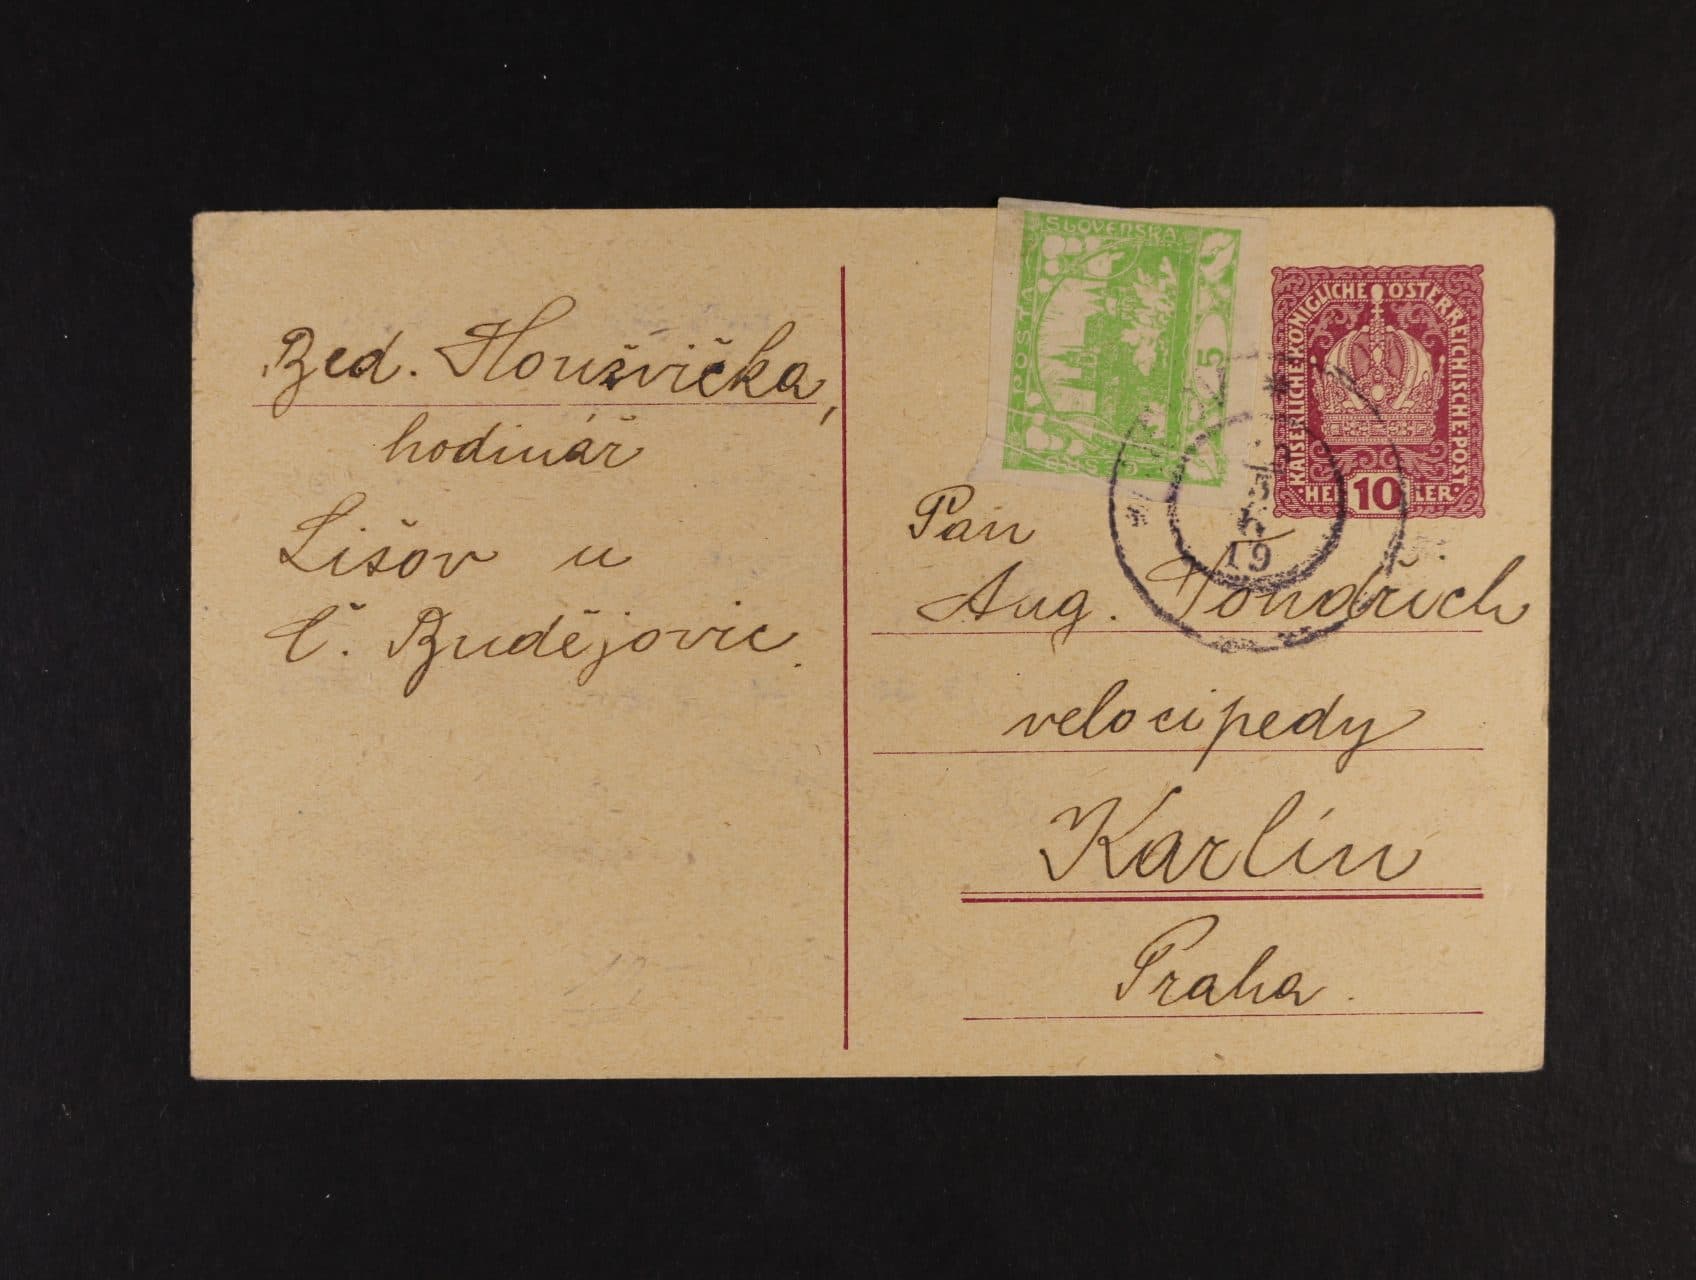 Bed. Houšvička,
hodinář
Lišov u
Č. Budějovic.
SLOVENSKÁ
POŠTA
5
KAISERLICHE·KÖNIGLICHE ÖSTERREICHISCHE·POST
HELLER
10
19
Pan
Aug. Vondřich
velocipedy
Karlín
Praha.